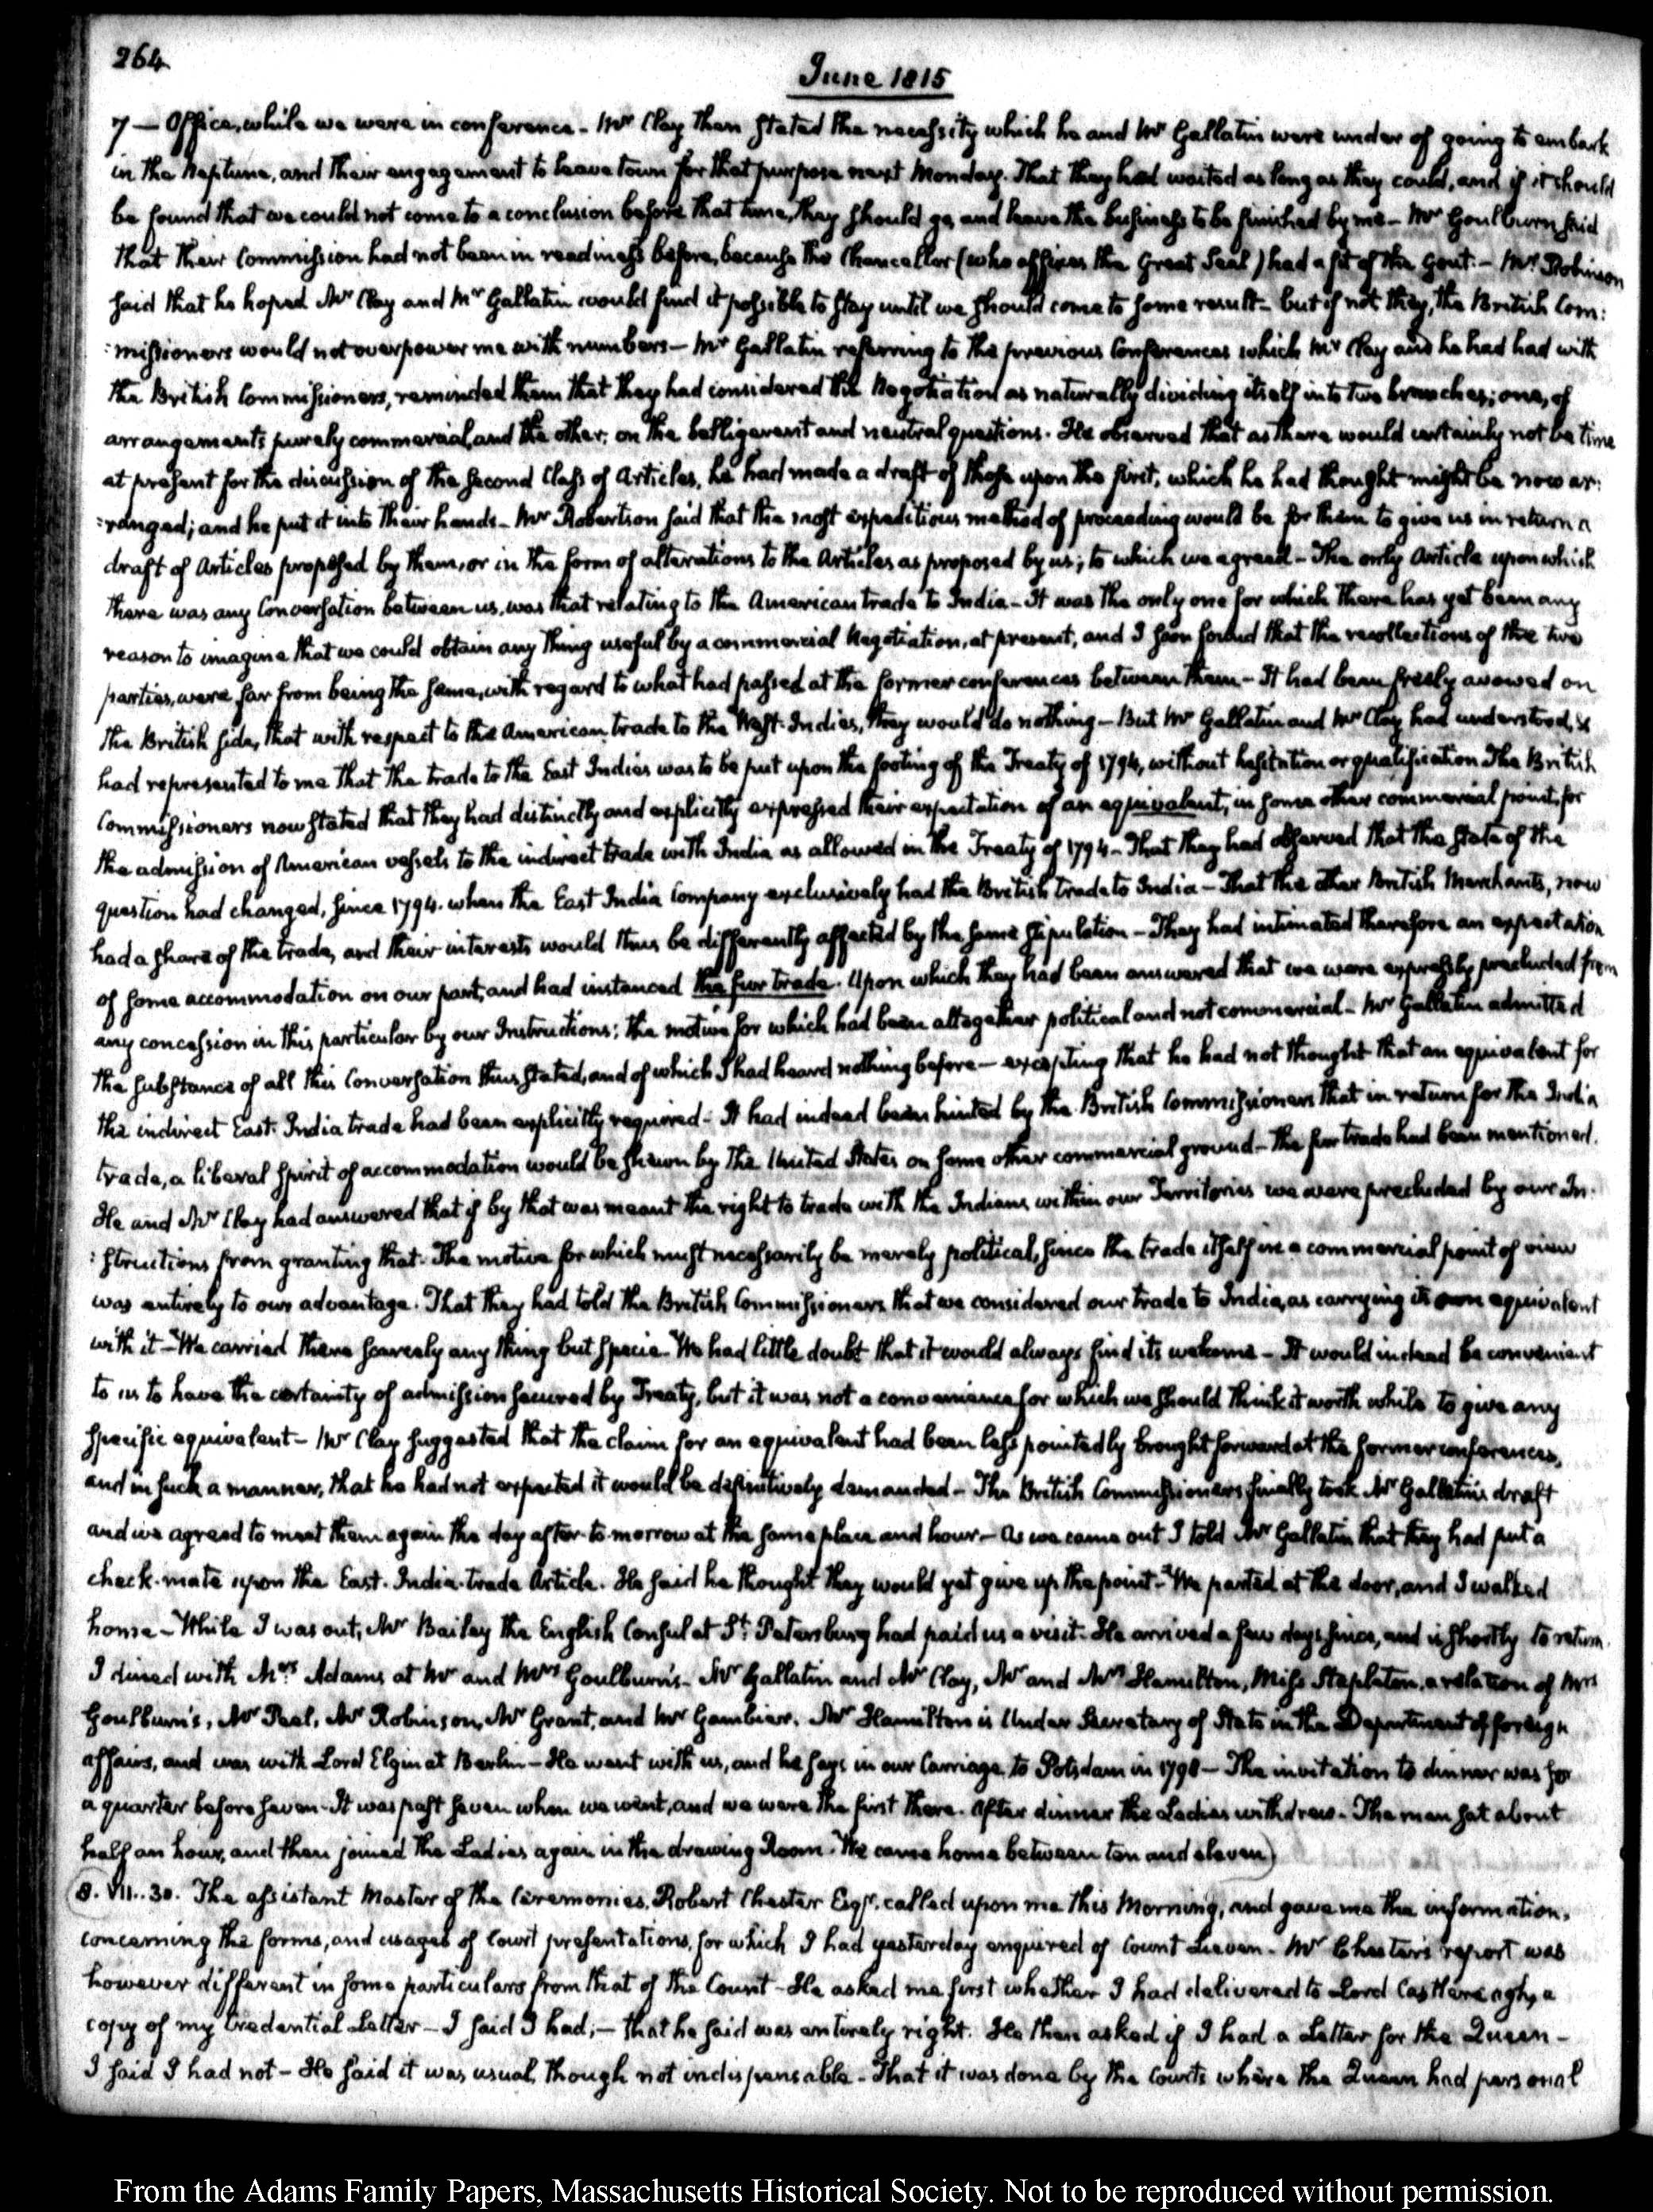 264
June 1815
7 — Office, while we were in conference - Mr Clay then stated the necessity which he and Mr Gallatin were under of going to embark
in the Neptune, and their engagement to leave town for that purpose next Monday. That they had waited as long as they could, and if it should
be found that we could not come to a conclusion before that time, they should go, and leave the business to be finished by me — Mr Goulburn said
that their Commission had not been in readiness before, because the Chancellor (who affixes the Great Seal) had a fit of the gout. — Mr Robinson
said that he hoped Mr Clay and Mr Gallatin would find it possible to stay until we should come to some result - but if not they, the British Com:
:missioners would not overpower me with numbers — Mr Gallatin referring to the previous Conferences which Mr Clay and he had had with
the British Commissioners, reminded them that they had considered the Negotiation as naturally dividing itself into two branches; one, of
arrangements purely commercial, and the other, on the belligerent and neutral questions. He observed that as there would certainly not be time
at present for the discussion of the second Class of Articles, he had made a draft of those upon the first, which he had thought might be now ar:
:ranged; and he put it into their hands - Mr Robertson said that the most expeditious method of proceeding would be for them to give us in return a
draft of Articles proposed by them, or in the form of alterations to the Articles as proposed by us; to which we agreed - The only Article upon which
there was any Conversation between us, was that relating to the American trade to India - It was the only one for which there has yet been any
reason to imagine that we could obtain any thing useful by a commercial Negotiation, at present, and I soon found that the recollections of the two
parties, were far from being the same, with regard to what had passed at the former conferences between them - It had been freely avowed on
the British side, that with respect to the American trade to the West-Indies, they would do nothing — But Mr Gallatin and Mr Clay had understood, &
had represented to me that the trade to the East Indies was to be put upon the footing of the Treaty of 1794, without hesitation or qualification The British
Commissioners now stated that they had distinctly and explicitly expressed their expectation of an equivalent, in some other commercial point, for
the admission of American vessels to the indirect trade with India as allowed in the Treaty of 1794 - That they had observed that the state of the
question had changed, since 1794. when the East India Company exclusively had the British trade to India - That the other British Merchants, now
had a share of the trade, and their interests would thus be differently affected by the same stipulation - They had intimated therefore an expectation
of some accommodation on our part, and had instanced the fur trade. Upon which they had been answered that we were expressly precluded from
any concession in this particular by our Instructions; the motive for which had been altogether political and not commercial - Mr Gallatin admitted
the substance of all this Conversation thus stated, and of which I had heard nothing before — excepting that he had not thought that an equivalent for
the indirect East-India trade had been explicitly required - It had indeed been hinted by the British Commissioners that in return for the India
trade, a liberal spirit of accommodation would be shewn by the United States on some other commercial ground - The fur trade had been mentioned.
He and Mr Clay had answered that if by that was meant the right to trade with the Indians within our Territories we were precluded by our In:
:structions from granting that. The motive for which must necessarily be merely political, since the trade itself in a commercial point of view
was entirely to our advantage. That they had told the British Commissioners that we considered our trade to India, as carrying its own equivalent
with it - We carried there scarcely any thing but specie. We had little doubt that it would always find its welcome - It would indeed be convenient
to us to have the certainty of admission secured by Treaty, but it was not a convenience for which we should think it worth while to give any
specific equivalent - Mr Clay suggested that the claim for an equivalent had been less pointedly brought forward at the former conferences,
and in such a manner, that he had not expected it would be definitively demanded - The British Commissioners finally took Mr Gallatin's draft
and we agreed to meet them again the day after to-morrow at the same place and hour - As we came out I told Mr Gallatin that they had put a
check-mate upon the East-India-trade Article. He said he thought they would yet give up the point - We parted at the door, and I walked
home - While I was out, Mr Bailey the English Consul at St. Petersburg had paid us a visit. He arrived a few days since, and is shortly to return.
I dined with Mrs Adams at Mr and Mrs Goulburn's - Mr Gallatin and Mr Clay, Mr and Mrs Hamilton, Miss Stapleton, a relation of Mrs
Goulburn's, Mr Peel, Mr Robinson, Mr Grant, and Mr Gambier. Mr Hamilton is Under Secretary of State in the Department of foreign
affairs, and was with Lord Elgin at Berlin - He went with us, and he says in our Carriage, to Potsdam in 1798 — The invitation to dinner was for
a quarter before seven - It was past seven when we went, and we were the first there. After dinner the Ladies withdrew. The men sat about
half an hour, and then joined the Ladies again in the drawing Room. We came home between ten and eleven)
8. VII..30. The assistant Master of the Ceremonies, Robert Chester Esqr. called upon me this Morning, and gave me the information,
concerning the forms, and usages of Court presentations, for which I had yesterday enquired of Count Lieven. Mr Chester's report was
however different in some particulars from that of the Count - He asked me first whether I had delivered to Lord Castlereagh, a
copy of my Credential Letter — I said I had; — that he said was entirely right. He then asked if I had a Letter for the Queen -
I said I had not - He said it was usual, though not indispensable - That it was done by the Courts where the Queen had personal
From the Adams Family Papers, Massachusetts Historical Society. Not to be reproduced without permission.